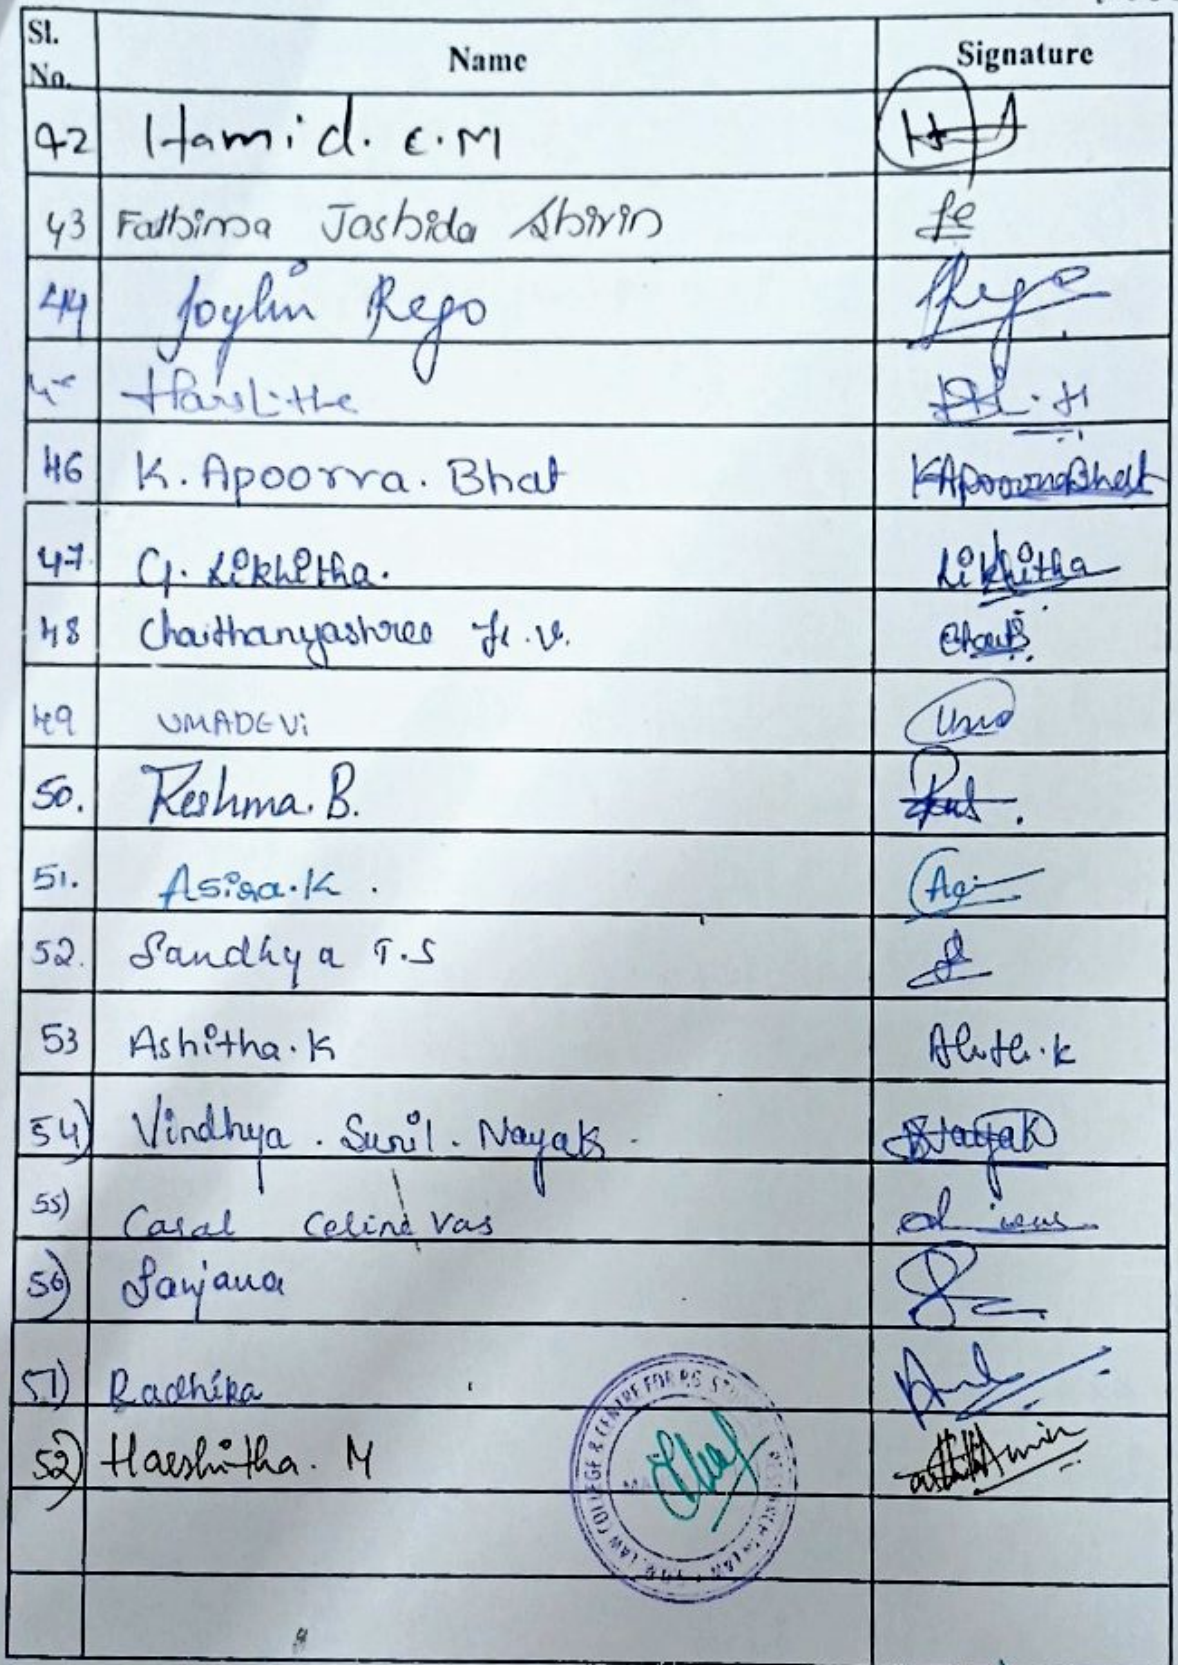 Sl. No. Name Signature
42 Hamid. C.M
43 Fathima Jashida Shirin
44 Joylin Rego Rego
45 Harshitha
46 K. Apoorva. Bhat KApoorvaBhat
47 G. Likhitha. Likhitha
48 Chaithanyashree K. V.
49 UMADEVi Uma
50. Reshma. B.
51. Asira. K.
52. Sandhya T.S
53 Ashitha. K
54) Vindhya. Sunil. Nayak. Nayak
55) Casal Celine Vas
56) Sanjana
57) Radhika
52) Harshitha. M
LAW COLLEGE & CENTRE FOR P.G. STUDIES